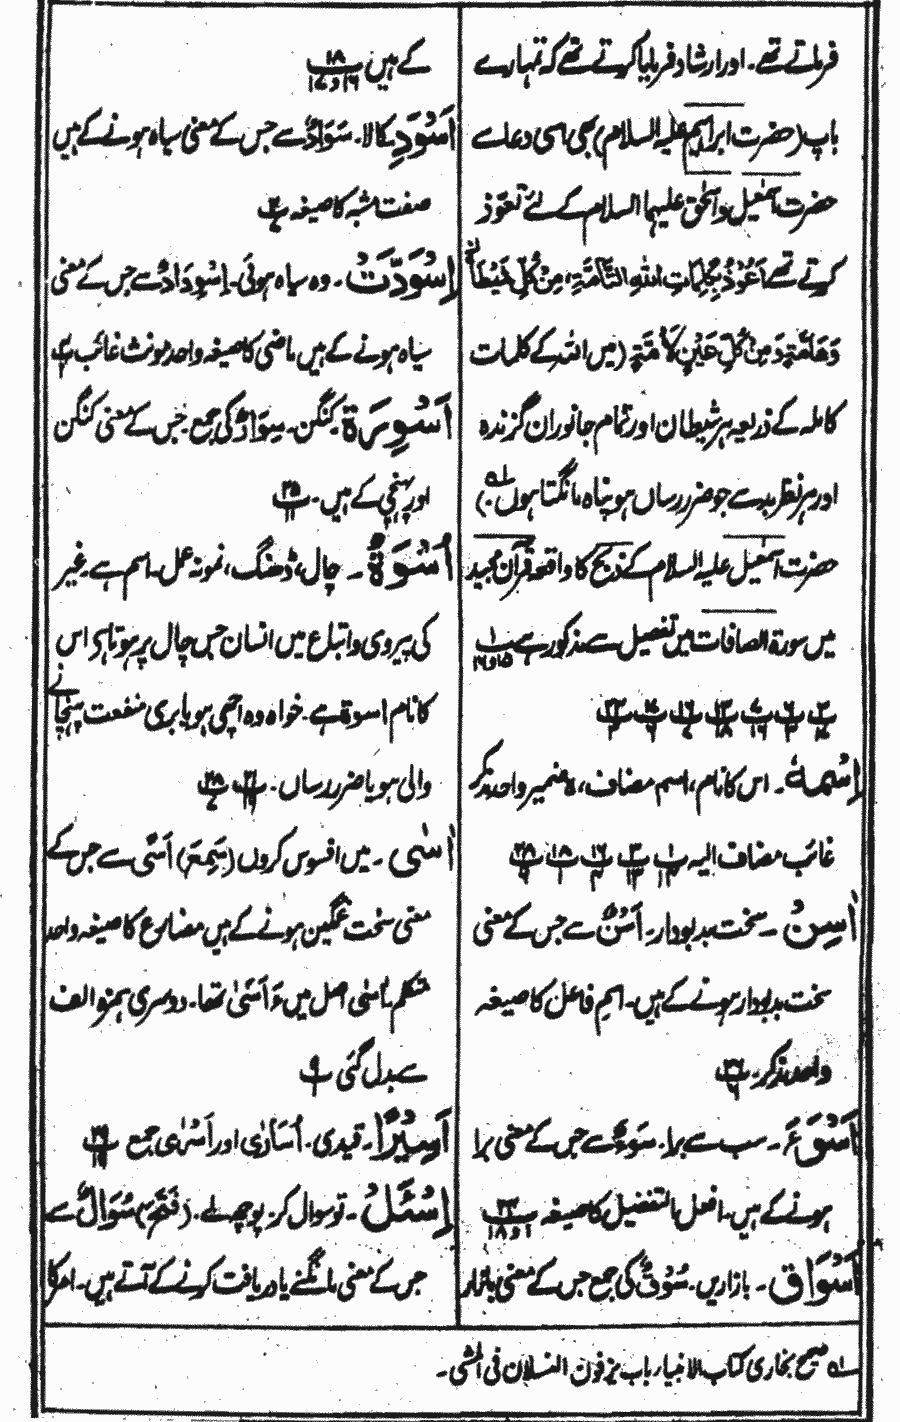 فرماتے تھے۔ اور ارشاد فرمایا کرتے تھے کہ تمہارے
باپ (حضرت ابراہیم علیہ السلام) بھی اسی دعا سے
حضرت اسمٰعیل و اسحٰق علیہما السلام کے لئے تعوّذ
کرتے تھے اَعُوْذُ بِکَلِمَاتِ اللہِ التَّآمَّۃِ، مِنْ کُلِّ شَیْطَانٍ
وَھَآمَّۃٍ وَمِنْ کُلِّ عَیْنٍ لَآ مَّۃٍ (میں اللہ کے کلمات
کاملہ کے ذریعہ ہر شیطان اور تمام جانوران گزندہ
اور ہر نظر بد سے جو ضرر رساں ہو پناہ مانگتا ہوں۔)
حضرت اسمٰعیل علیہ السلام کے ذبح کا واقعہ قرآن مجید
میں سورۃ الصافات میں تفصیل سے مذکور ہے
اِسْمُہٗ۔ اس کا نام، اسم مضاف، ہٗ ضمیر واحد مذکر
غائب مضاف الیہ
اٰسِنٍ۔ سخت بدبودار۔ اَسَنٌ سے جس کے معنی
سخت بدبودار ہونے کے ہیں۔ اسم فاعل کا صیغہ
واحد مذکر۔
اَسْوَءَ۔ سب سے برا۔ سَوْءٌ سے جس کے معنی برا
ہونے کے ہیں۔ افعل التفضیل کا صیغہ
اَسْوَاقِ۔ بازاریں۔ سُوْقٌ کی جمع جس کے معنی بازار
کے ہیں
اَسْوَدِ کالا۔ سَوَادٌ سے جس کے معنی سیاہ ہونے کے ہیں
صفت مشبہ کا صیغہ
اِسْوَدَّتْ۔ وہ سیاہ ہوئی۔ اِسْوِدَادٌ سے جس کے معنی
سیاہ ہونے کے ہیں ماضی کا صیغہ واحد مونث غائب
اَسْوِرَۃٌ کنگن۔ سِوَارٌ کی جمع۔ جس کے معنی کنگن
اور پہنچی کے ہیں۔
اُسْوَۃٌ۔ چال، ڈھنگ، نمونہ عمل۔ اسم ہے۔ غیر
کی پیروی و اتباع میں انسان جس چال پر ہوتا ہے اس
کا نام اسوۃ ہے۔ خواہ وہ اچھی ہو یا بری منفعت پہنچانے
والی ہو یا ضرر رساں۔
اٰسٰی۔ میں افسوس کروں (سَمِعَ) اَسًی سے جس کے
معنی سخت غمگین ہونے کے ہیں مضارع کا صیغہ واحد
متکلم۔ اٰسٰی اصل میں ءَاَسٰی تھا۔ دوسری ہمزہ الف
سے بدل گئی
اَسِیْرًا۔ قیدی۔ اُسَارٰی اور اَسْرٰی جمع
اِسْئَلْ۔ تو سوال کر۔ پوچھ لے۔ (فَتَحَ) سُوَالٌ سے
جس کے معنی مانگنے یا دریافت کرنے کے آتے ہیں۔ امر کا
صحیح بخاری کتاب الانبیاء باب یزفون النسلان فی المشی۔